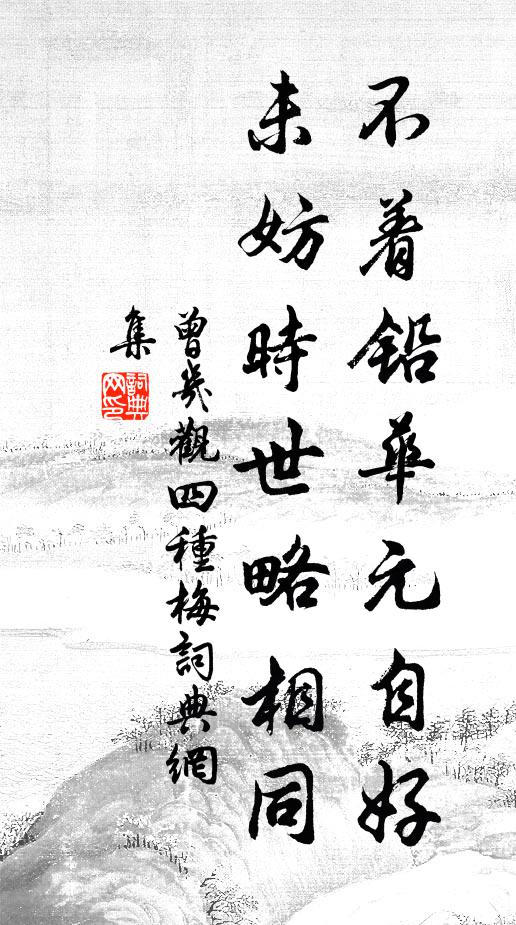 不着鉛華元自好
未妨時世略相同
曾幾觀四種梅詞典網
集
詞典
網印